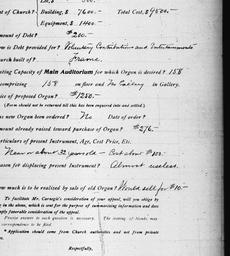 of Church? Building, $ 7600.– Total Cost, $9500.–
Equipment, $ 1400.–
mount of Debt? $200.–
is Debt provided for? Voluntary Contributions and Entertainments
urch built of? Frame
ating Capacity of Main Auditorium for which Organ is desired? 158
omprising 158 on floor and No Gallery in Gallery.
ice of proposed Organ? $1250.–
(Form should not be returned till this has been enquired into and settled.)
s new Organ been Ordered? No Date of order?
mount already raised toward purchase of Organ? $276.–
articulars of present Instrument, Age, Cost Price, Etc.
Near or about 32 years old – Cost about $100.–
eason for displacing present Instrument? Almost useless.
ow much is to be realized by sale of old Organ? Would sell for $10.–
To facilitate Mr. Carnegie's consideration of your appeal, will you oblige by
g in the above, which is sent for purpose of summarizing information and does
mply favorable consideration of the appeal.
Precise answer to each question is necessary.
correspondence to be filed.
* Application should come from Church authorities and not from private
Respectfully,